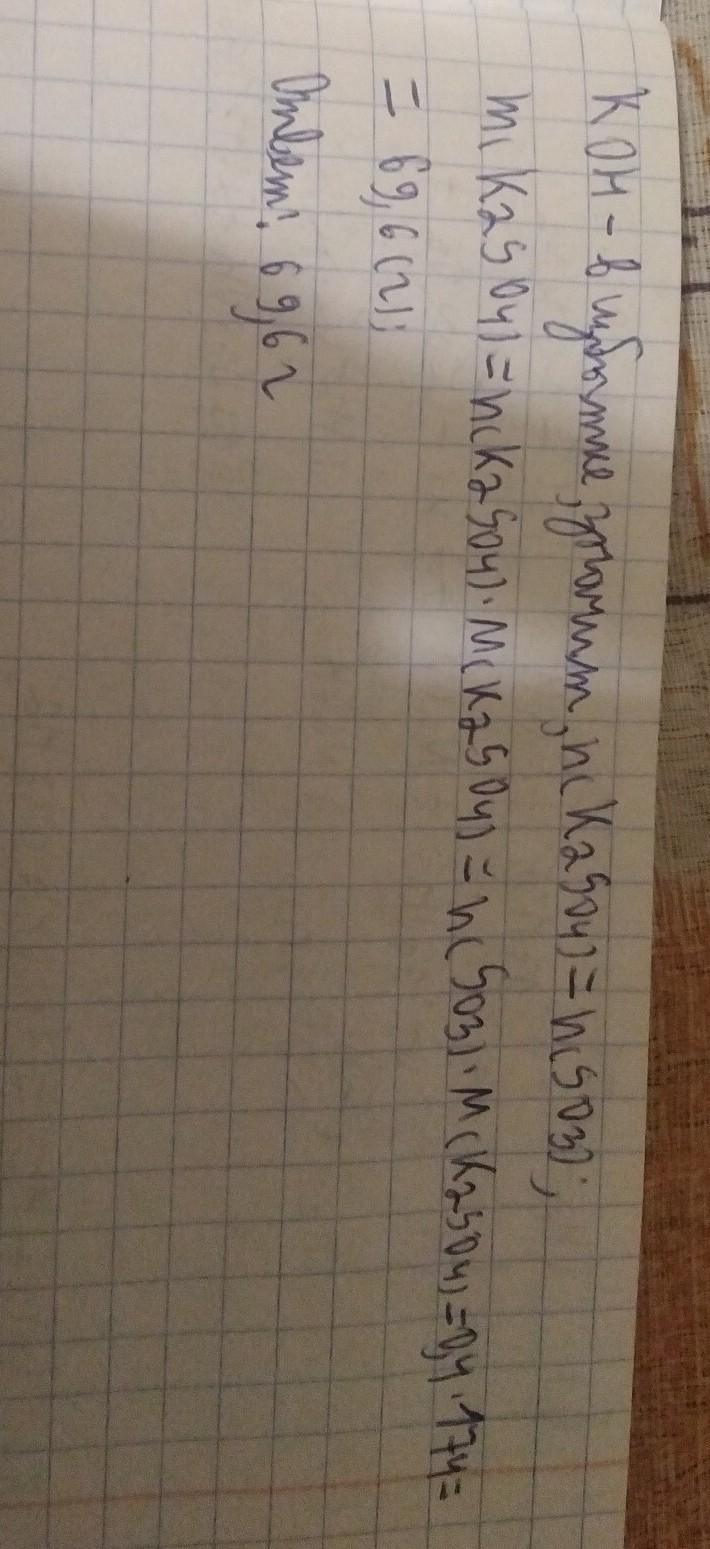 KOH - в избытке, значит, n(K2SO4) = n(SO3);
m(K2SO4) = n(K2SO4) · M(K2SO4) = n(SO3) · M(K2SO4) = 0,4 · 174 =
= 69,6 (г);
Ответ: 69,6 г